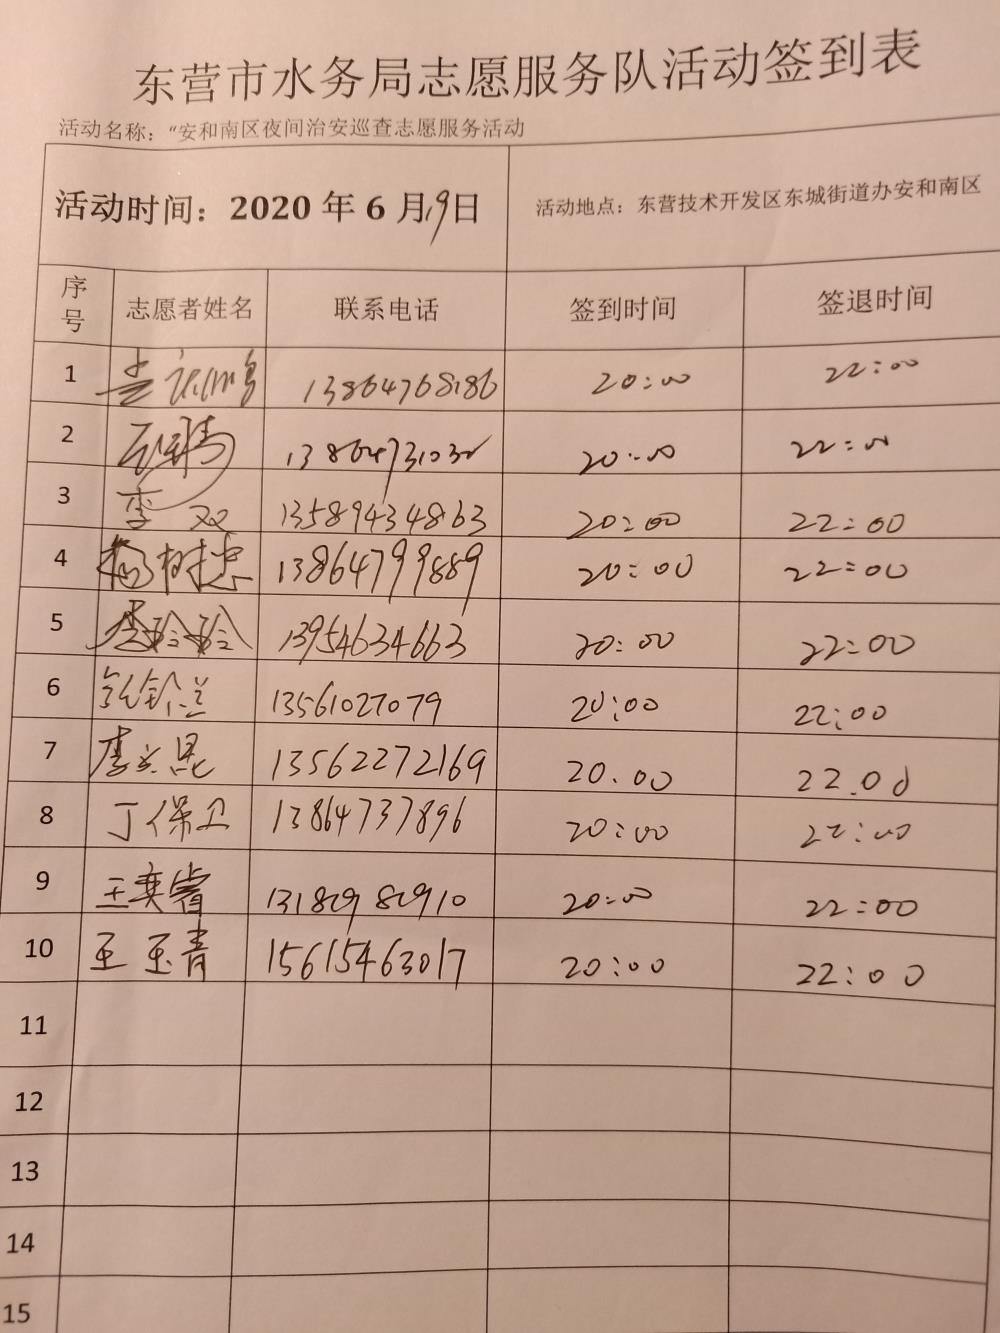 东营市水务局志愿服务队活动签到表
活动名称：“安和南区夜间治安巡查志愿服务活动
活动时间：2020 年 6 月19日 活动地点：东营技术开发区东城街道办安和南区
序号 志愿者姓名 联系电话 签到时间 签退时间
1 13864768186 20:00 22:00
2 20:00 22:00
3 李双 13589434863 20:00 22:00
4 杨树忠 13864799889 20:00 22:00
5 李玲玲 13954634663 20:00 22:00
6 13561027079 20:00 22:00
7 李文昆 13562272169 20.00 22.00
8 丁保卫 13864737896 20:00 22:00
9 王奕睿 20:00 22:00
10 王玉青 15615463017 20:00 22:00
11
12
13
14
15